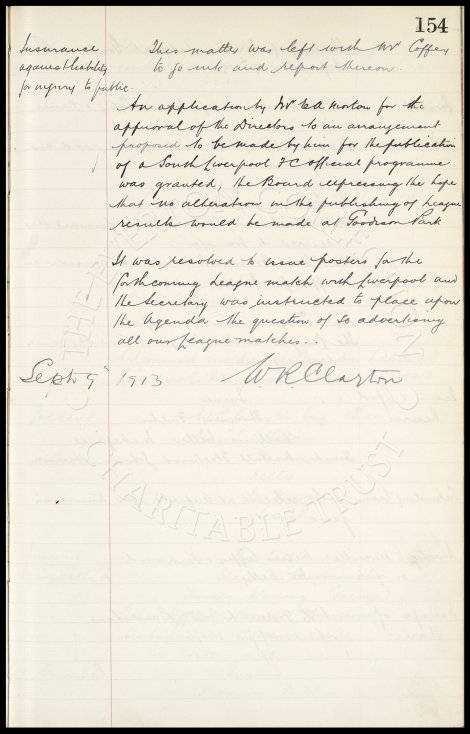 154
Insurance
against liability
for injury to public.
This matter was left with Mr Coffey
to go into and report thereon.
An application by Mr E A Morton for the
approval of the Directors to an arrangement
proposed to be made by him for the publication
of a South Liverpool F C official programme
was granted, the Board expressing the hope
that no alteration in the publishing of League
results would be made at Goodison Park
It was resolved to issue posters for the
forthcoming League match with Liverpool and
the Secretary was instructed to place upon
the Agenda the question of so advertising
all our League matches..
Sept 9 1913 W. R. Clayton
CHARITABLE TRUST